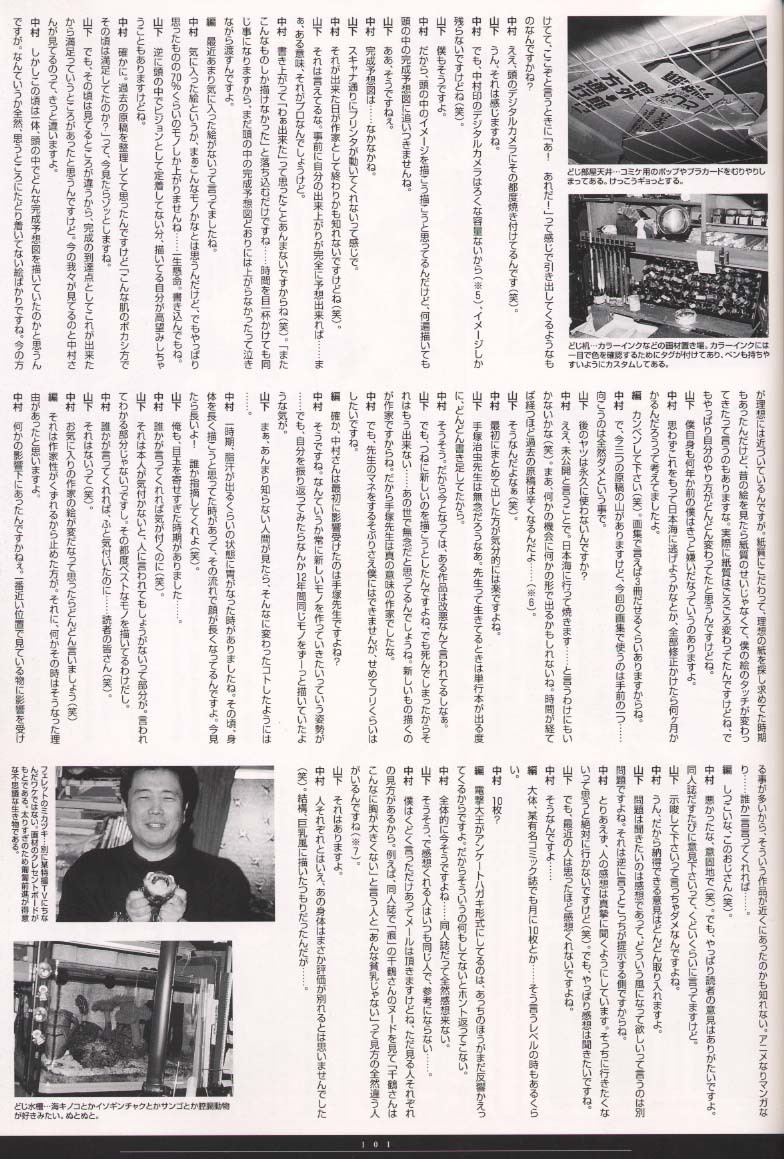 けてて、ここぞと言うときに「あ! あれだ!」って感じで引き出してくるようなも
のなんですかね?
中村 ええ、頭のデジタルカメラにその都度焼き付けてるんです(笑)。
山下 うん、それは感じますね。
中村 でも、中村印のデジタルカメラはろくな容量ないから(※5)、イメージしか
残らないですけどね(笑)。
山下 僕もそうですよ。
中村 だから、頭の中のイメージを描こう描こうと思ってるんだけど、何遍描いても
頭の中の完成予想図に追いつきませんね。
山下 ああ、そうですねぇ。
中村 完成予想図は……なかなかね。
山下 スキャナ通りにプリンタが動いてくれないって感じで。
中村 それが出来た日が作家として終わりかも知れないですけどね(笑)。
山下 それは言えてるな。事前に自分の出来上がりが完全に予想出来れば……ま
ぁ、ある意味、それがプロなんでしょうけど。
中村 書き上がって「わぁ出来た」って思ったことあんまないですからね(笑)。「また
こんなものしか描けなかった」と落ち込むだけですね……時間を目一杯かけても同
じ事になりますから、まだ頭の中の完成予想図どおりには上がらなかったって泣き
ながら渡すんですよ。
編 最近あまり気に入った絵がないって言ってましたね。
中村 気に入った絵というか、まぁこんなモノかなとは思うんだけど、でもやっぱり
思ったものの70%くらいのモノしか上がりませんね……一生懸命。書き込んでもね。
山下 逆に頭の中でビジョンとして定着してない分、描いてる自分が高望みしちゃ
うこともありますけどね。
中村 確かに。過去の原稿を整理してて思ったんですけど「こんな肌のボカシ方で
その頃は満足してたのか?」って、今見たらゾッとしますね。
山下 でも、その頃は見てるところが違うから、完成の到達点としてこれが出来た
から満足っていうところがあったと思うんですけど。今の我々が見てるのと中村さ
んが見てるのって、きっと違いますよ。
中村 しかしこの頃は一体、頭の中でどんな完成予想図を描いていたのかと思うん
ですが。なんていうか全然、思うところにたどり着いてない絵ばかりですね。今の方
どじ部屋天井…コミケ用のポップやプラカードをむりやりし
まってある。けっこうギョっとする。
どじ机…カラーインクなどの画材置き場。カラーインクには
一目で色を確認するためにタグが付けてあり、ペンも持ちや
すいようにカスタムしてある。
が理想には近づいているんですが。紙質にこだわって、理想の紙を探し求めてた時期
もあったんだけど、昔の絵を見たら紙質のせいじゃなくて、僕の絵のタッチが変わっ
てきたって言うのもありますな。実際に紙質はごろごろ変わってたんですけどね、で
もやっぱり自分のやり方がどんどん変わってたと思うんですけどね。
山下 僕自身も何年か前の僕はきっと嫌いだなっていうのありますよ。
中村 思わずこれをもって日本海に逃げようかなとか、全部修正かけたら何ヶ月か
かるんだろうって考えてましたよ。
編 カンベンして下さい(笑)。画集で言えば3冊だせるくらいありますからね。
中村 で、今二つ三つの原稿の山がありますけど、今回の画集で使うのは手前の一つ……
向こうのは全然ダメという事で。
山下 後のヤツは永久に使わないんですか?
中村 ええ、未公開と言うことで。日本海に行って焼きます……と言うわけにもい
かないかな(笑)。まあ、何かの機会に何かの形で出るかもしれないね。時間が経て
ば経つほど過去の原稿は辛くなるんだよ……(※6)。
山下 そうなんだよなぁ(笑)。
中村 最初にまとめて出した方が気分的には楽ですよね。
山下 手塚治虫先生は無念だろうなあ。先生って生きてるときは単行本が出る度
に、どんどん書き足してたから。
中村 そうそう。だから今となっては、ある作品は改悪なんて言われてるしなぁ。
山下 でも、つねに新しいのを描こうとしたんですよね、でも死んでしまったからそ
れはもう出来ない……あの世で無念だと思ってるんでしょうね。新しいもの描くの
が作家ですからね。だから手塚先生は真の意味の作家でしたな。
中村 でも、先生のマネをするそぶりさえ僕にはできませんが、せめてフリくらいは
したいですね。
編 確か、中村さんは最初に影響受けたのは手塚先生ですよね?
中村 そうですね。なんていうか常に新しいモノを作っていきたいっていう姿勢が
……でも、自分を振り返ってみたらなんか12年間同じモノをずーっと描いていたよ
うな気が。
山下 まぁ、あんまり知らない人間が見たら、そんなに変わったコトしたようには
……。
中村 一時期、脂汗が出るくらいの状態に胃がなった時がありましたね。その頃、身
体を長く描こうと思ってた時があって、その流れで顔が長くなってるんですよ。今見
たら長いよ! 誰か指摘してくれよ(笑)。
山下 俺も、目玉を寄せすぎた時期がありました……。
中村 誰かが言ってくれれば気が付くのに(笑)。
山下 それは本人が気付かないと、人に言われてもしょうがないって部分が。言われ
てわかる部分じゃないですし。その都度ベストなモノを描いてるわけだし。
中村 誰かが言ってくれれば、ふと気付いたのに……読者の皆さん(笑)。
山下 それはないって(笑)。
中村 お気に入りの作家の絵が変だなって思ったらどんどん言いましょう(笑)
編 それは作家性がくずれるから止めた方が。それに、何かその時はそうなった理
由があったと思いますよ。
中村 何かの影響下にあったんですかねぇ。一番近い位置で見ている物に影響を受け
る事が多いから、そういう作品が近くにあったのかも知れない。アニメなりマンガな
り……誰か一言言ってくれれば……。
編 しつこいな、このおじさん(笑)。
中村 悪かったな、意固地で(笑)。でも、やっぱり読者の意見はありがたいですよ。
同人誌だすたびに意見下さいって、くどいくらいに言ってますけど。
山下 示唆して下さいって言っちゃダメなんですよね。
中村 うん、だから納得できる意見はどんどん取り入れますよ。
山下 問題は聞きたいのは感想であって、どういう風になって欲しいって言うのは別
問題ですよね。それは逆に言うとこっちが提示する側ですからね。
中村 とりあえず、人の感想は真摯に聞くようにしています。そっちに行きたくな
いって思うと絶対に行かないですけど(笑)。でも、やっぱり感想は聞きたいですね。
山下 でも、最近の人は思ったほど感想くれないですよね。
中村 そうなんですよ……。
編 大体、某有名コミック誌でも月に10枚とか……そう言うレベルの時もあるくら
い。
中村 10枚?
編 電撃大王がアンケートハガキ形式にしてるのは、あっちのほうがまだ反響かえっ
てくるからですよ。だからそういうの何もしてないとホント返ってこない。
中村 全体的に今そうですよね……同人誌だって全然感想来ない。
山下 そうそう、で感想くれる人はいつも同じ人で、参考にならない……。
中村 僕はくどく言っただけあってメールは頂きますけどね、ただ見る人それぞれ
の見方があるから。例えば、同人誌で『痕』の千鶴さんのヌードを見て「千鶴さんは
こんなに胸が大きくない」と言う人と「あんな貧乳じゃない」って見方の全然違う人
がいるんですね(※7)。
山下 それはありますよ。
中村 人それぞれとはいえ、あの身体はまさか評価が別れるとは思いませんでした
(笑)。結構、巨乳風に描いたつもりだったんだが……。
フェレットのミカヅキ…別に某特撮TVにちな
んだワケではない。画材のクレセントボードが
もとである。太りすぎのため匍匐前進が得意
な不思議な生き物である。
どじ水槽…海キノコとかイソギンチャクとかサンゴとか腔腸動物
が好きみたい。ぬとぬと。
101